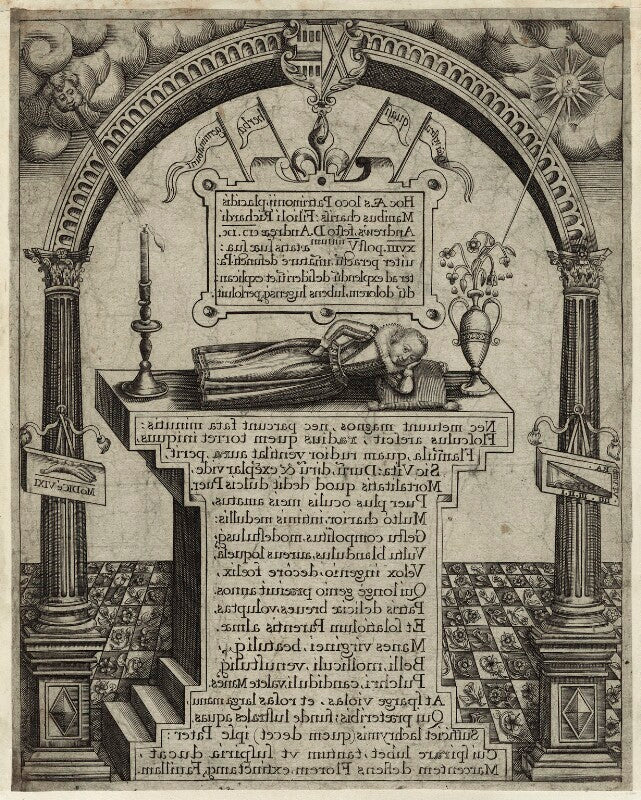 quam
Hoc Æs loco Patrimonij placidis
Manibus chariss: Filioli Richardi
Andrews, festo D. Andreæ
XVIII. post V ætatis suæ sua:
uiter peractũ
dũ dolorem, lubens lugensq, persoluit.
MoDICè VIXI
Nec metuunt magnos, nec parcunt fata minutis:
Flosculus arescit, radius quem torret iniquus,
Flam̃ula, quam rudior ventilat aura, perit.
Sic Vita: Da: dirũ & exẽplar vide,
Mortalitatis quod dedit dulcis Puer,
Puer plus oculis meis amatus,
Multo charior, intimis medullis:
Gestu compositus, modestulusq,
Vultu blandulus, aureus loquelâ,
Velox ingenio, decore fœlix,
Qui longe genio præiuit annos.
Patris deliciæ breues, voluptas,
Et solatiolum Parentis almæ.
Manes virginei, beatuliq,
Belli, molliculi, venustuliq,
Pulchri, candiduli, valete Manes.
At sparge violas, et rosas larga manu
Qui præteribis; funde lustrales aquas
Sufficiet lachrymas, quem decet, ipse Pater:
Cui spirare lubet tantum, vt suspiria ducat,
Marcentem deflens Florem, extinctamq, Facillam.